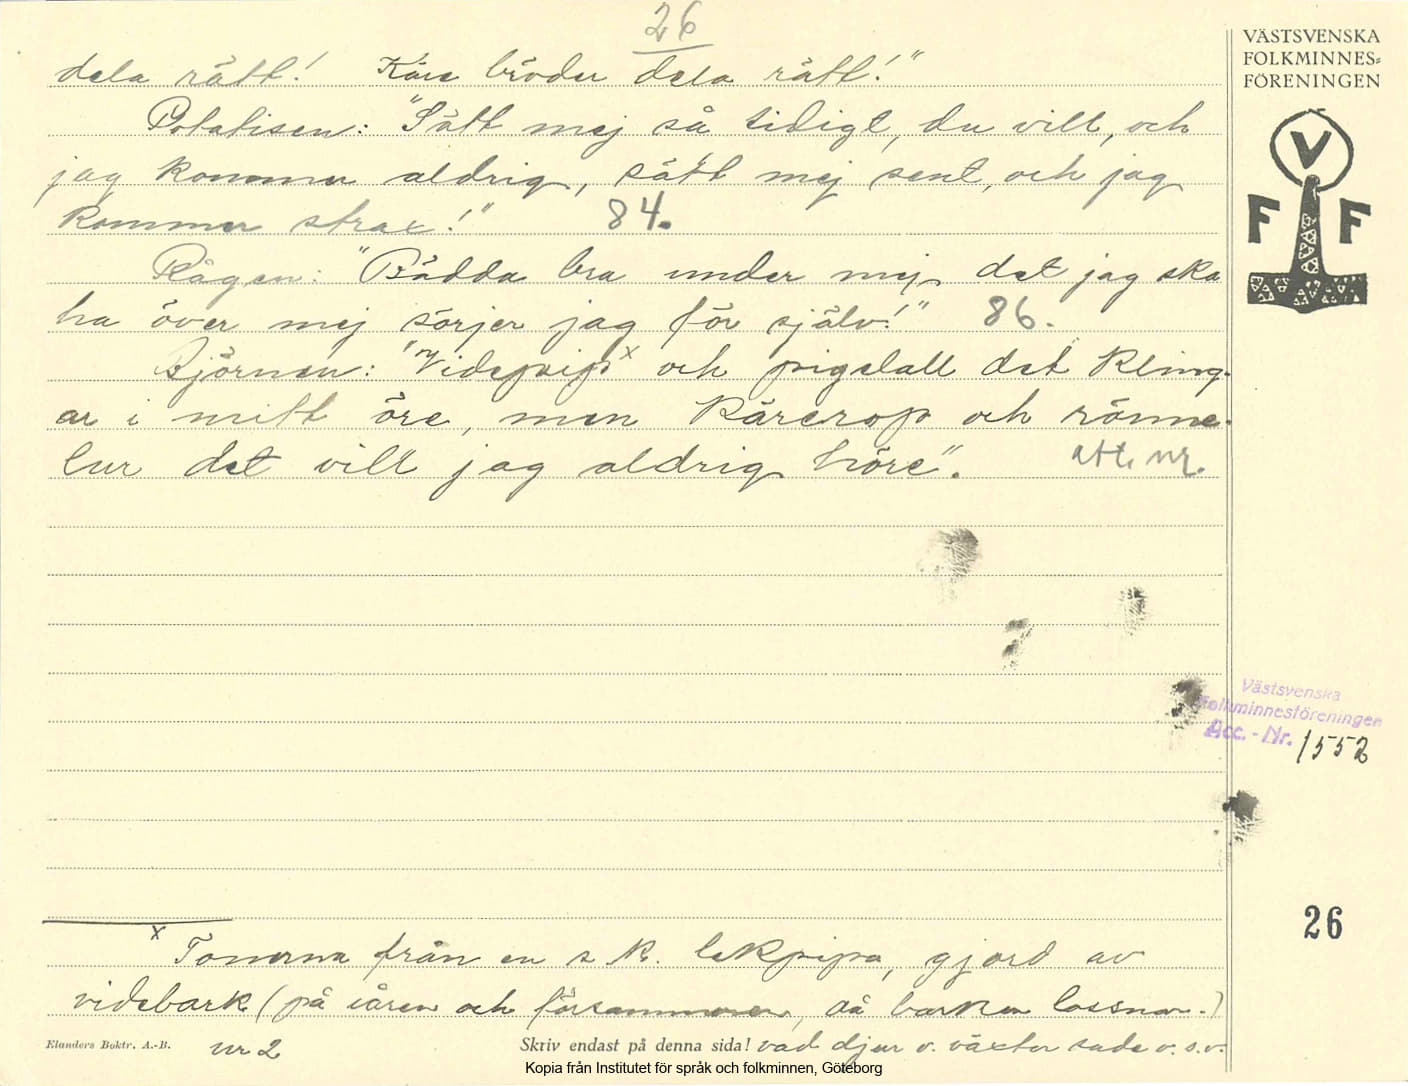 26
dela rätt! Käre bröder dela rätt!"
Potatisen: "Sätt mej så tidigt, du vill, och
jag kommer aldrig, sätt mej sent, och jag
kommer strax!" 84.
Rågen: "Bädda bra under mej, det jag ska
ha över mej sörjer jag för själv!" 86.
Björnen: "Videpip x och pigelall det kling-
ar i mitt öre, men kärerop och rönne-
lur det vill jag aldrig höre". att. nr.
x Tonerna från en s k. lekpipa, gjord av
videbark (på våren och försommaren, då barken lossnar.)
Elanders Boktr. A.-B. nr 2 Skriv endast på denna sida! vad djur o. växter sade o. s. v.
Kopia från Institutet för språk och folkminnen, Göteborg
VÄSTSVENSKA
FOLKMINNES=
FÖRENINGEN
V
F F
Västsvenska
Folkminnesföreningen
Acc. - Nr. 1552
26